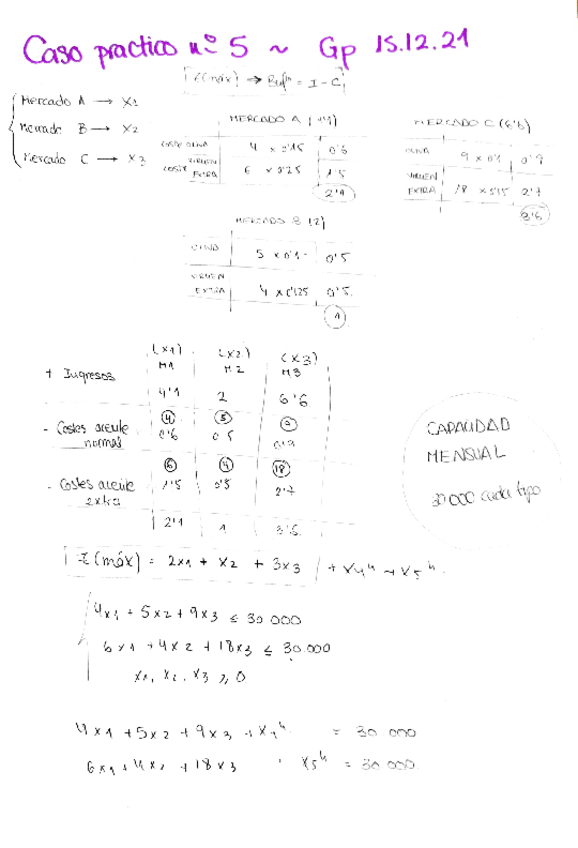 Caso practico nº 5 ~ Gp 15.12.21
Z(máx) → Bº = I - C
Mercado A → X1
Mercado B → X2
Mercado C → X3
MERCADO A
OLIVA 4 x 0'15 0'6
VIRGEN EXTRA 6 x 0'25 1'5
2'1
MERCADO C (6'6)
OLIVA 9 x 0'1 0'9
VIRGEN EXTRA 18 x 0'15 2'7
3'6
MERCADO B (2)
OLIVA 5 x 0'1 0'5
VIRGEN EXTRA 4 x 0'125 0'5
1
(X1) (X2) (X3)
M1 M2 M3
+ Ingresos 4'1 2 6'6
④ ⑤ ⑨
- Costes aceite normal 0'6 0'5 0'9
⑥ ④ ⑱
- Costes aceite extra 1'5 0'5 2'7
2'1 1 3'6
CAPACIDAD
MENSUAL
30 000 cada tipo
Z (máx) = 2x1 + x2 + 3x3 + x4ʰ + x5ʰ
4x1 + 5x2 + 9x3 ≤ 30.000
6x1 + 4x2 + 18x3 ≤ 30.000
x1, x2, x3 ≥ 0
4x1 + 5x2 + 9x3 + x4ʰ = 30 000
6x1 + 4x2 + 18x3 + x5ʰ = 30.000